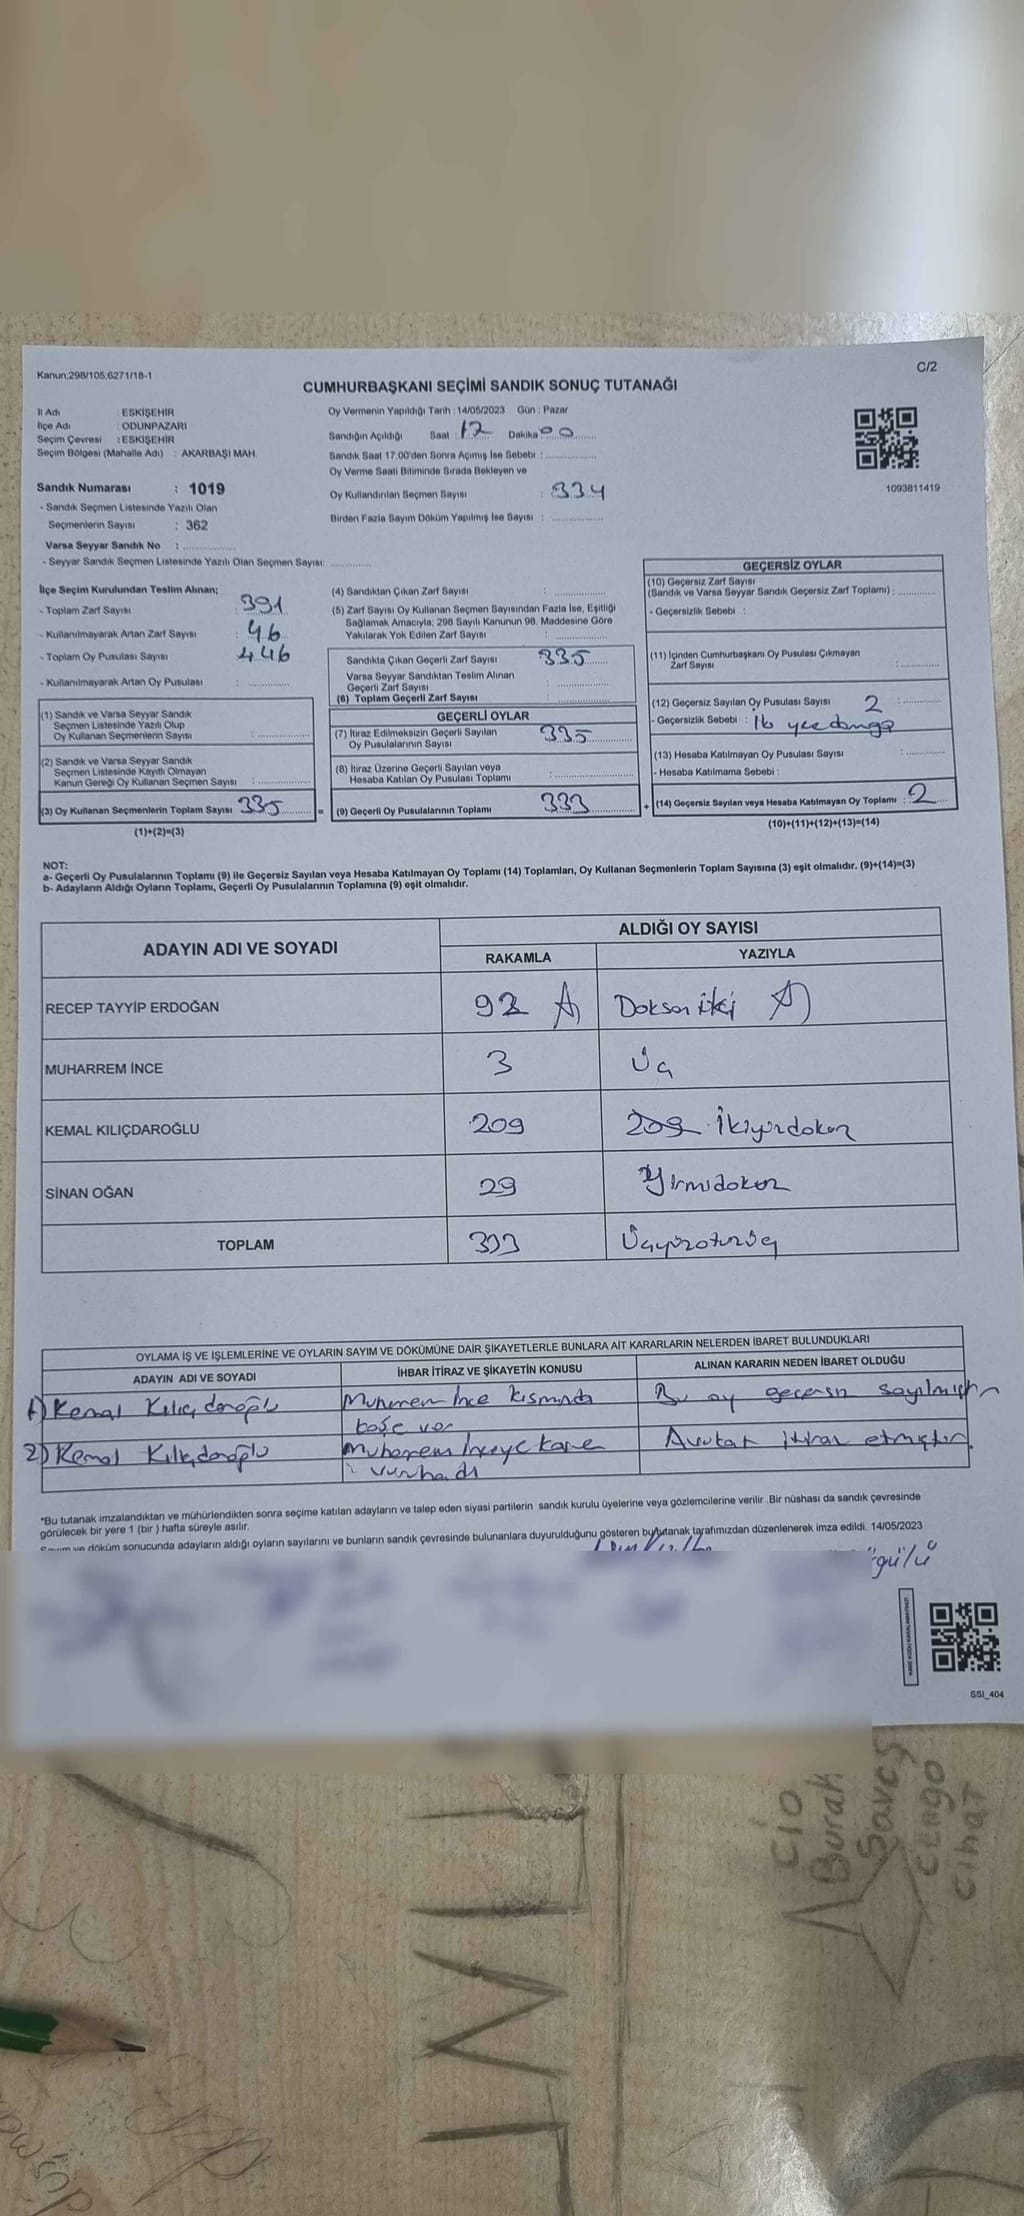 Kanun;298/105,6271/18-1
C/2
CUMHURBAŞKANI SEÇİMİ SANDIK SONUÇ TUTANAĞI
İl Adı : ESKİŞEHİR
İlçe Adı : ODUNPAZARI
Seçim Çevresi : ESKİŞEHİR
Seçim Bölgesi (Mahalle Adı) : AKARBAŞI MAH.
Sandık Numarası : 1019
- Sandık Seçmen Listesinde Yazılı Olan
Seçmenlerin Sayısı : 362
Varsa Seyyar Sandık No :
- Seyyar Sandık Seçmen Listesinde Yazılı Olan Seçmen Sayısı:
Oy Vermenin Yapıldığı Tarih : 14/05/2023 Gün : Pazar
Sandığın Açıldığı Saat : 17 Dakika 00
Sandık Saat 17.00'den Sonra Açımış İse Sebebi :
Oy Verme Saati Bitiminde Sırada Bekleyen ve
Oy Kullandırılan Seçmen Sayısı : 334
Birden Fazla Sayım Döküm Yapılmış İse Sayısı :
1093811419
İlçe Seçim Kurulundan Teslim Alınan;
- Toplam Zarf Sayısı : 391
- Kullanılmayarak Artan Zarf Sayısı : 46
- Toplam Oy Pusulası Sayısı 446
- Kullanılmayarak Artan Oy Pusulası :
(1) Sandık ve Varsa Seyyar Sandık
Seçmen Listesinde Yazılı Olup
Oy Kullanan Seçmenlerin Sayısı :
(2) Sandık ve Varsa Seyyar Sandık
Seçmen Listesinde Kayıtlı Olmayan
Kanun Gereği Oy Kullanan Seçmen Sayısı :
(3) Oy Kullanan Seçmenlerin Toplam Sayısı 335
(1)+(2)=(3)
(4) Sandıktan Çıkan Zarf Sayısı :
(5) Zarf Sayısı Oy Kullanan Seçmen Sayısından Fazla İse, Eşitliği
Sağlamak Amacıyla; 298 Sayılı Kanunun 98. Maddesine Göre
Yakılarak Yok Edilen Zarf Sayısı :
Sandıkta Çıkan Geçerli Zarf Sayısı 335
Varsa Seyyar Sandıktan Teslim Alınan
Geçerli Zarf Sayısı :
(6) Toplam Geçerli Zarf Sayısı :
GEÇERLİ OYLAR
(7) İtiraz Edilmeksizin Geçerli Sayılan
Oy Pusulalarının Sayısı 335
(8) İtiraz Üzerine Geçerli Sayılan veya
Hesaba Katılan Oy Pusulası Toplamı :
= (9) Geçerli Oy Pusulalarının Toplamı 333
GEÇERSİZ OYLAR
(10) Geçersiz Zarf Sayısı
(Sandık ve Varsa Seyyar Sandık Geçersiz Zarf Toplamı) :
- Geçersizlik Sebebi :
(11) İçinden Cumhurbaşkanı Oy Pusulası Çıkmayan
Zarf Sayısı :
(12) Geçersiz Sayılan Oy Pusulası Sayısı 2 :
- Geçersizlik Sebebi :
(13) Hesaba Katılmayan Oy Pusulası Sayısı :
- Hesaba Katılmama Sebebi :
+ (14) Geçersiz Sayılan veya Hesaba Katılmayan Oy Toplamı : 2
(10)+(11)+(12)+(13)=(14)
NOT:
a- Geçerli Oy Pusulalarının Toplamı (9) ile Geçersiz Sayılan veya Hesaba Katılmayan Oy Toplamı (14) Toplamları, Oy Kullanan Seçmenlerin Toplam Sayısına (3) eşit olmalıdır. (9)+(14)=(3)
b- Adayların Aldığı Oyların Toplamı, Geçerli Oy Pusulalarının Toplamına (9) eşit olmalıdır.
ADAYIN ADI VE SOYADI
ALDIĞI OY SAYISI
RAKAMLA YAZIYLA
RECEP TAYYİP ERDOĞAN 92 Doksan iki
MUHARREM İNCE 3 Üç
KEMAL KILIÇDAROĞLU 209 209 İkiyüzdokuz
SİNAN OĞAN 29 Yirmidokuz
TOPLAM 333 Üçyüzotuzüç
OYLAMA İŞ VE İŞLEMLERİNE VE OYLARIN SAYIM VE DÖKÜMÜNE DAİR ŞİKAYETLERLE BUNLARA AİT KARARLARIN NELERDEN İBARET BULUNDUKLARI
ADAYIN ADI VE SOYADI İHBAR İTİRAZ VE ŞİKAYETİN KONUSU ALINAN KARARIN NEDEN İBARET OLDUĞU
1) Kemal Kılıçdaroğlu Muharrem İnce kısmında Bu oy geçersiz sayılmıştır
kaşe var
2) Kemal Kılıçdaroğlu Muharrem İnceye kaşe Avukat itiraz etmiştir.
vurulmadı
*Bu tutanak imzalandıktan ve mühürlendikten sonra seçime katılan adayların ve talep eden siyasi partilerin sandık kurulu üyelerine veya gözlemcilerine verilir .Bir nüshası da sandık çevresinde
görülecek bir yere 1 (bir ) hafta süreyle asılır.
Sayım ve döküm sonucunda adayların aldığı oyların sayılarını ve bunların sandık çevresinde bulunanlara duyurulduğunu gösteren bu tutanak tarafımızdan düzenlenerek imza edildi. 14/05/2023
KARE KODU KARALAMAYINIZ!
SSI_404
CİO
Burak
Savaş
Cihat